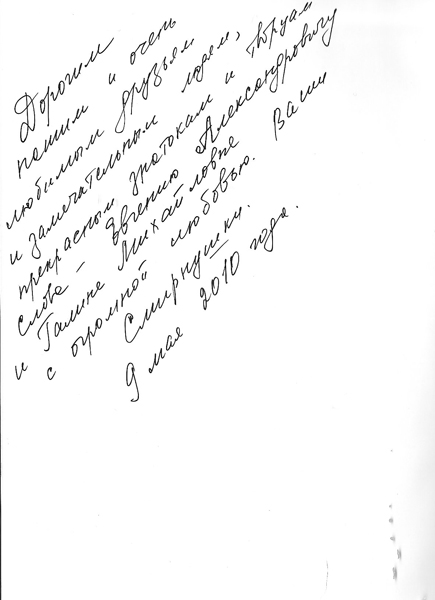 Дорогим
нашим и очень
любимым друзьям
и замечательным людям,
прекрасным знатокам и творцам
слова – Евгению Александровичу
и Галине Михайловне
с огромной любовью. Ваши
Смирнушки.
9 мая 2010 года.